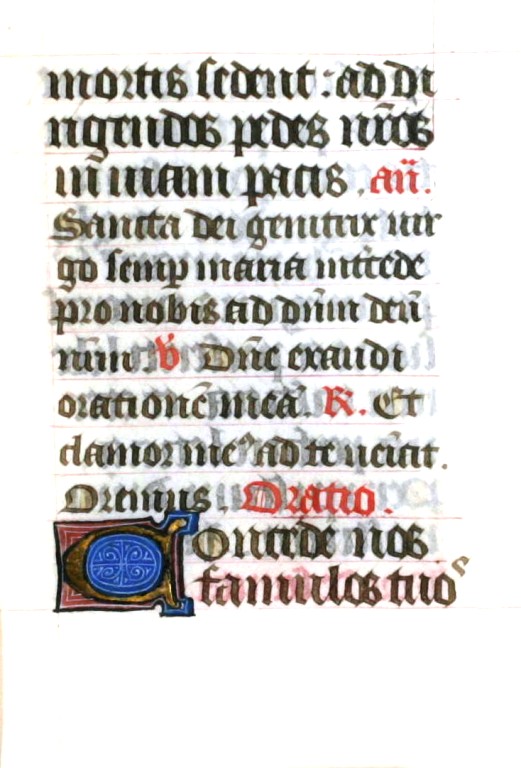 mortis sedent : ad di
rigendos pedes nr̄os
in uiam pacis . añ.
Sancta dei genitrix uir
go semꝑ maria intcede
pro nobis ad dn̄m deū
nr̄m . ℣ Dn̄e exaudi
orationē meā . ℟. Et
clamor meꝰ ad te ueniat .
Oremus . Oratio .
Concede nos
famulos tuos